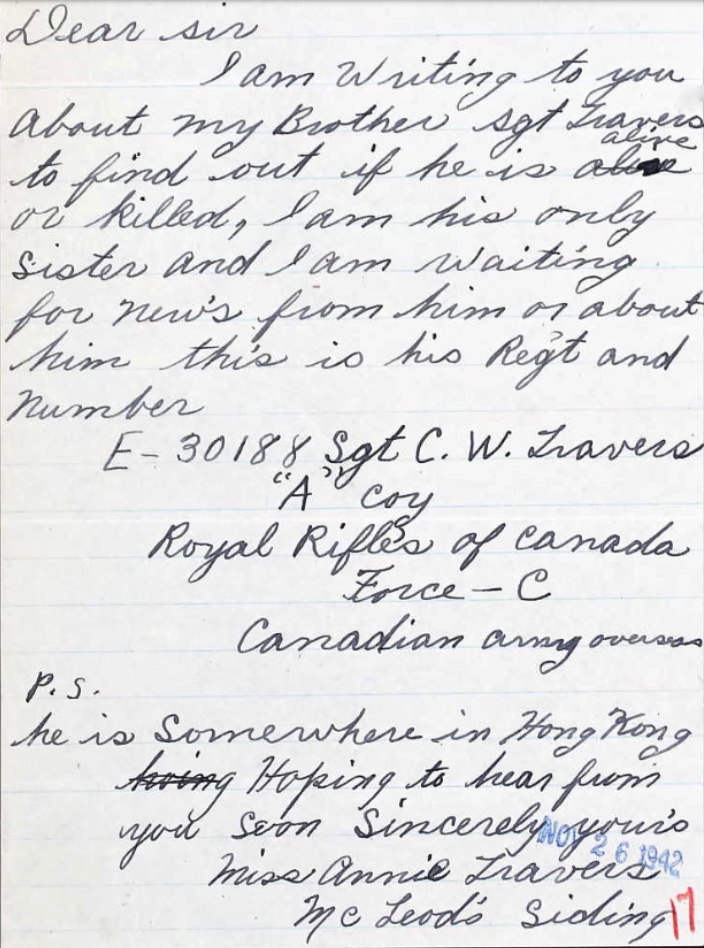 Dear sir
I am Writing to you
about my Brother sgt Travers
alive
to find out if he is
or killed, I am his only
sister and I am waiting
for new's from him or about
him this is his Reg't and
number
E-30188 Sgt C. W. Travers
"A" coy
Royal Rifles of Canada
Force - C
Canadian army overseas
P.S.
he is Somewhere in Hong Kong
Hoping to hear from
you soon Sincerely your's
NOV 26 1942
Miss Annie Travers
Mc Leod's Siding
17